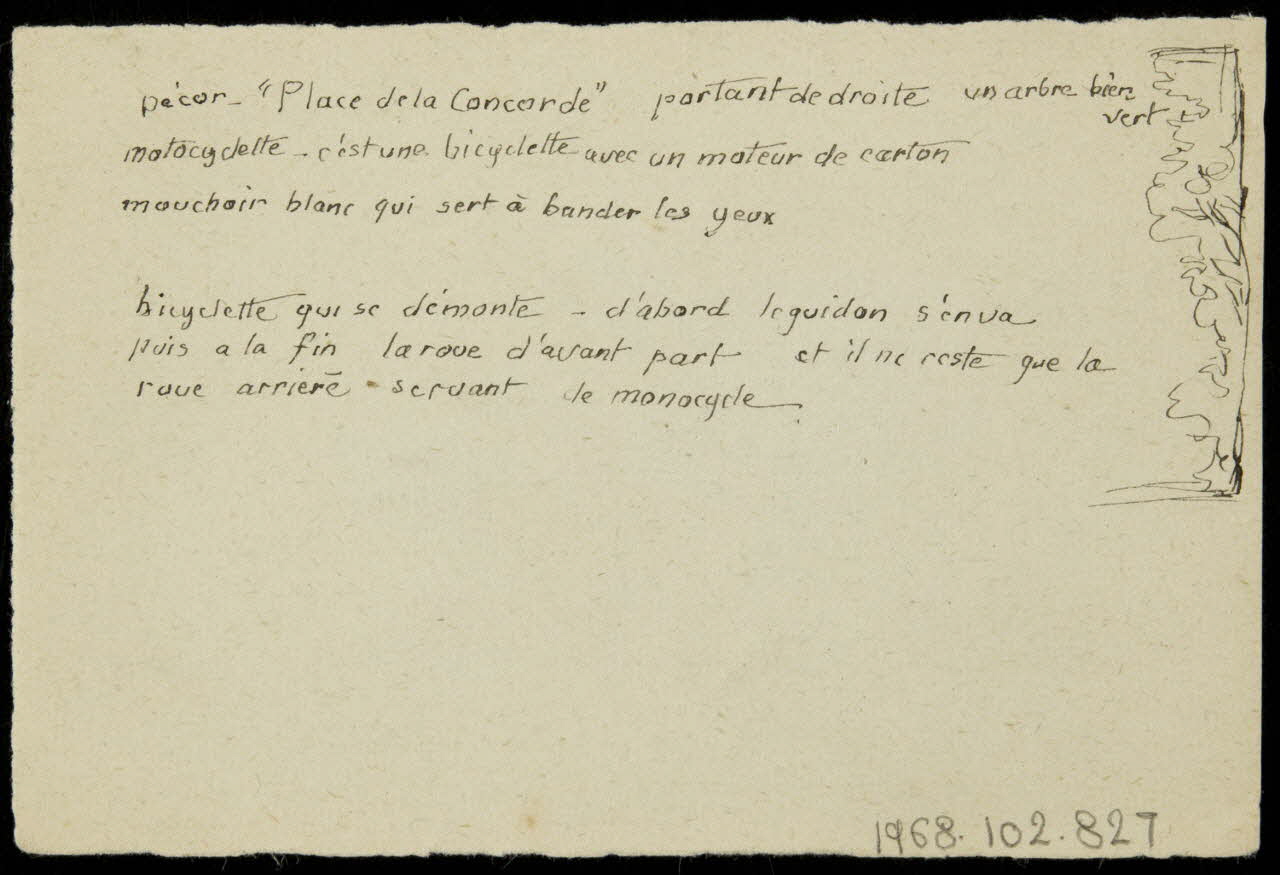 Décor - "Place de la Concorde" portant de droite un arbre bien
vert
motocyclette - c'est une bicyclette avec un moteur de carton
mouchoir blanc qui sert à bander les yeux
bicyclette qui se démonte - d'abord le guidon s'en va
puis a la fin la roue d'avant part et il ne reste que la
roue arrière servant de monocycle
1968.102.827